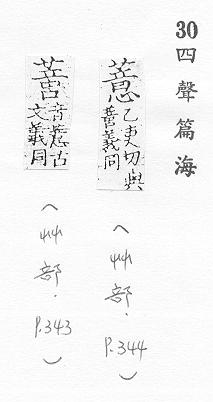 30 四聲篇海
薏 乙吏切與
義同
(艸部.P.344)
音薏古
文義同
(艸部.P.343)